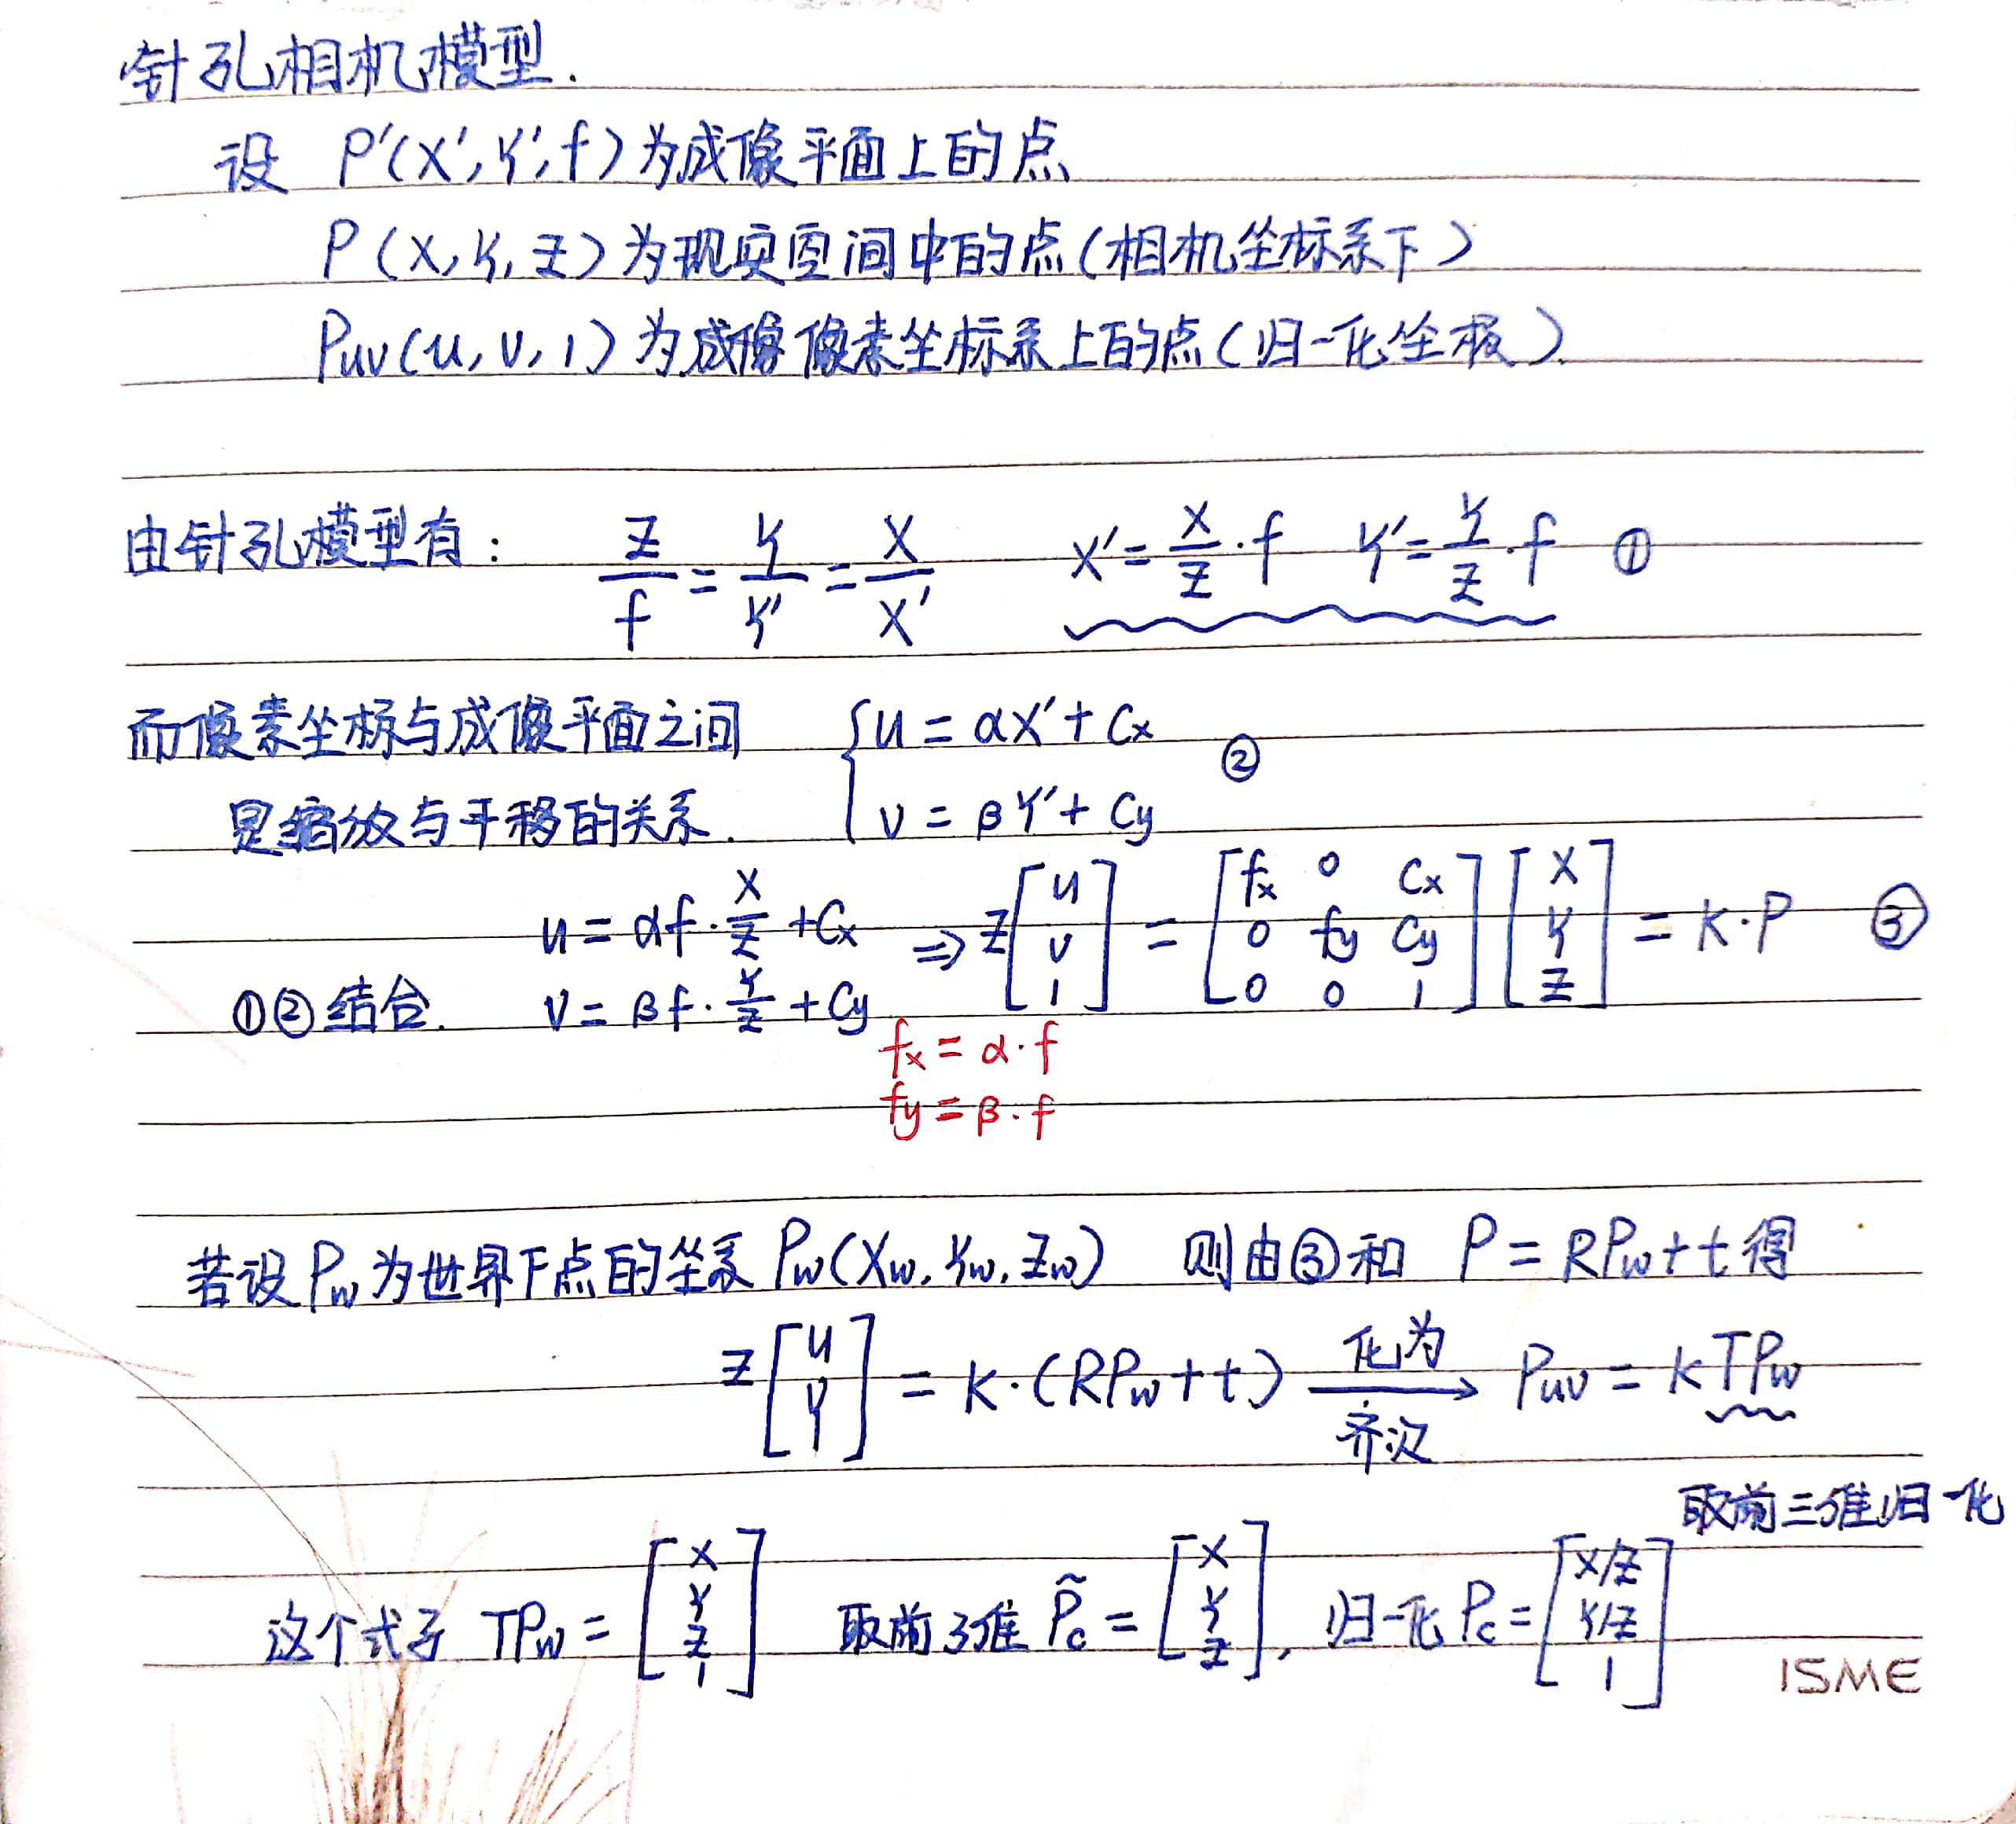 针孔相机模型.
设 P'(X', Y', f) 为成像平面上的点
P(X, Y, Z) 为现实空间中的点(相机坐标系下)
Puv(u, v, 1) 为成像像素坐标系上的点(归一化坐标).
由针孔模型有: Z/f = Y/Y' = X/X' X' = X/Z · f Y' = Y/Z · f ①
而像素坐标与成像平面之间 { u = αX' + Cx
是缩放与平移的关系. v = βY' + Cy ②
u = αf · X/Z + Cx ⇒ Z [u v 1] = [fx 0 Cx; 0 fy Cy; 0 0 1] [X Y Z] = K·P ③
①②结合. v = βf · Y/Z + Cy
fx = α·f
fy = β·f
若设Pw为世界下点的坐系 Pw(Xw, Yw, Zw) 则由③和 P = RPw + t 得
Z [u v 1] = K·(RPw + t) 化为齐次 → Puv = KTPw
取前三维归一化
这个式子 TPw = [X Y Z 1] 取前3维 P̃c = [X Y Z], 归一化 Pc = [X/Z Y/Z 1]
ISME